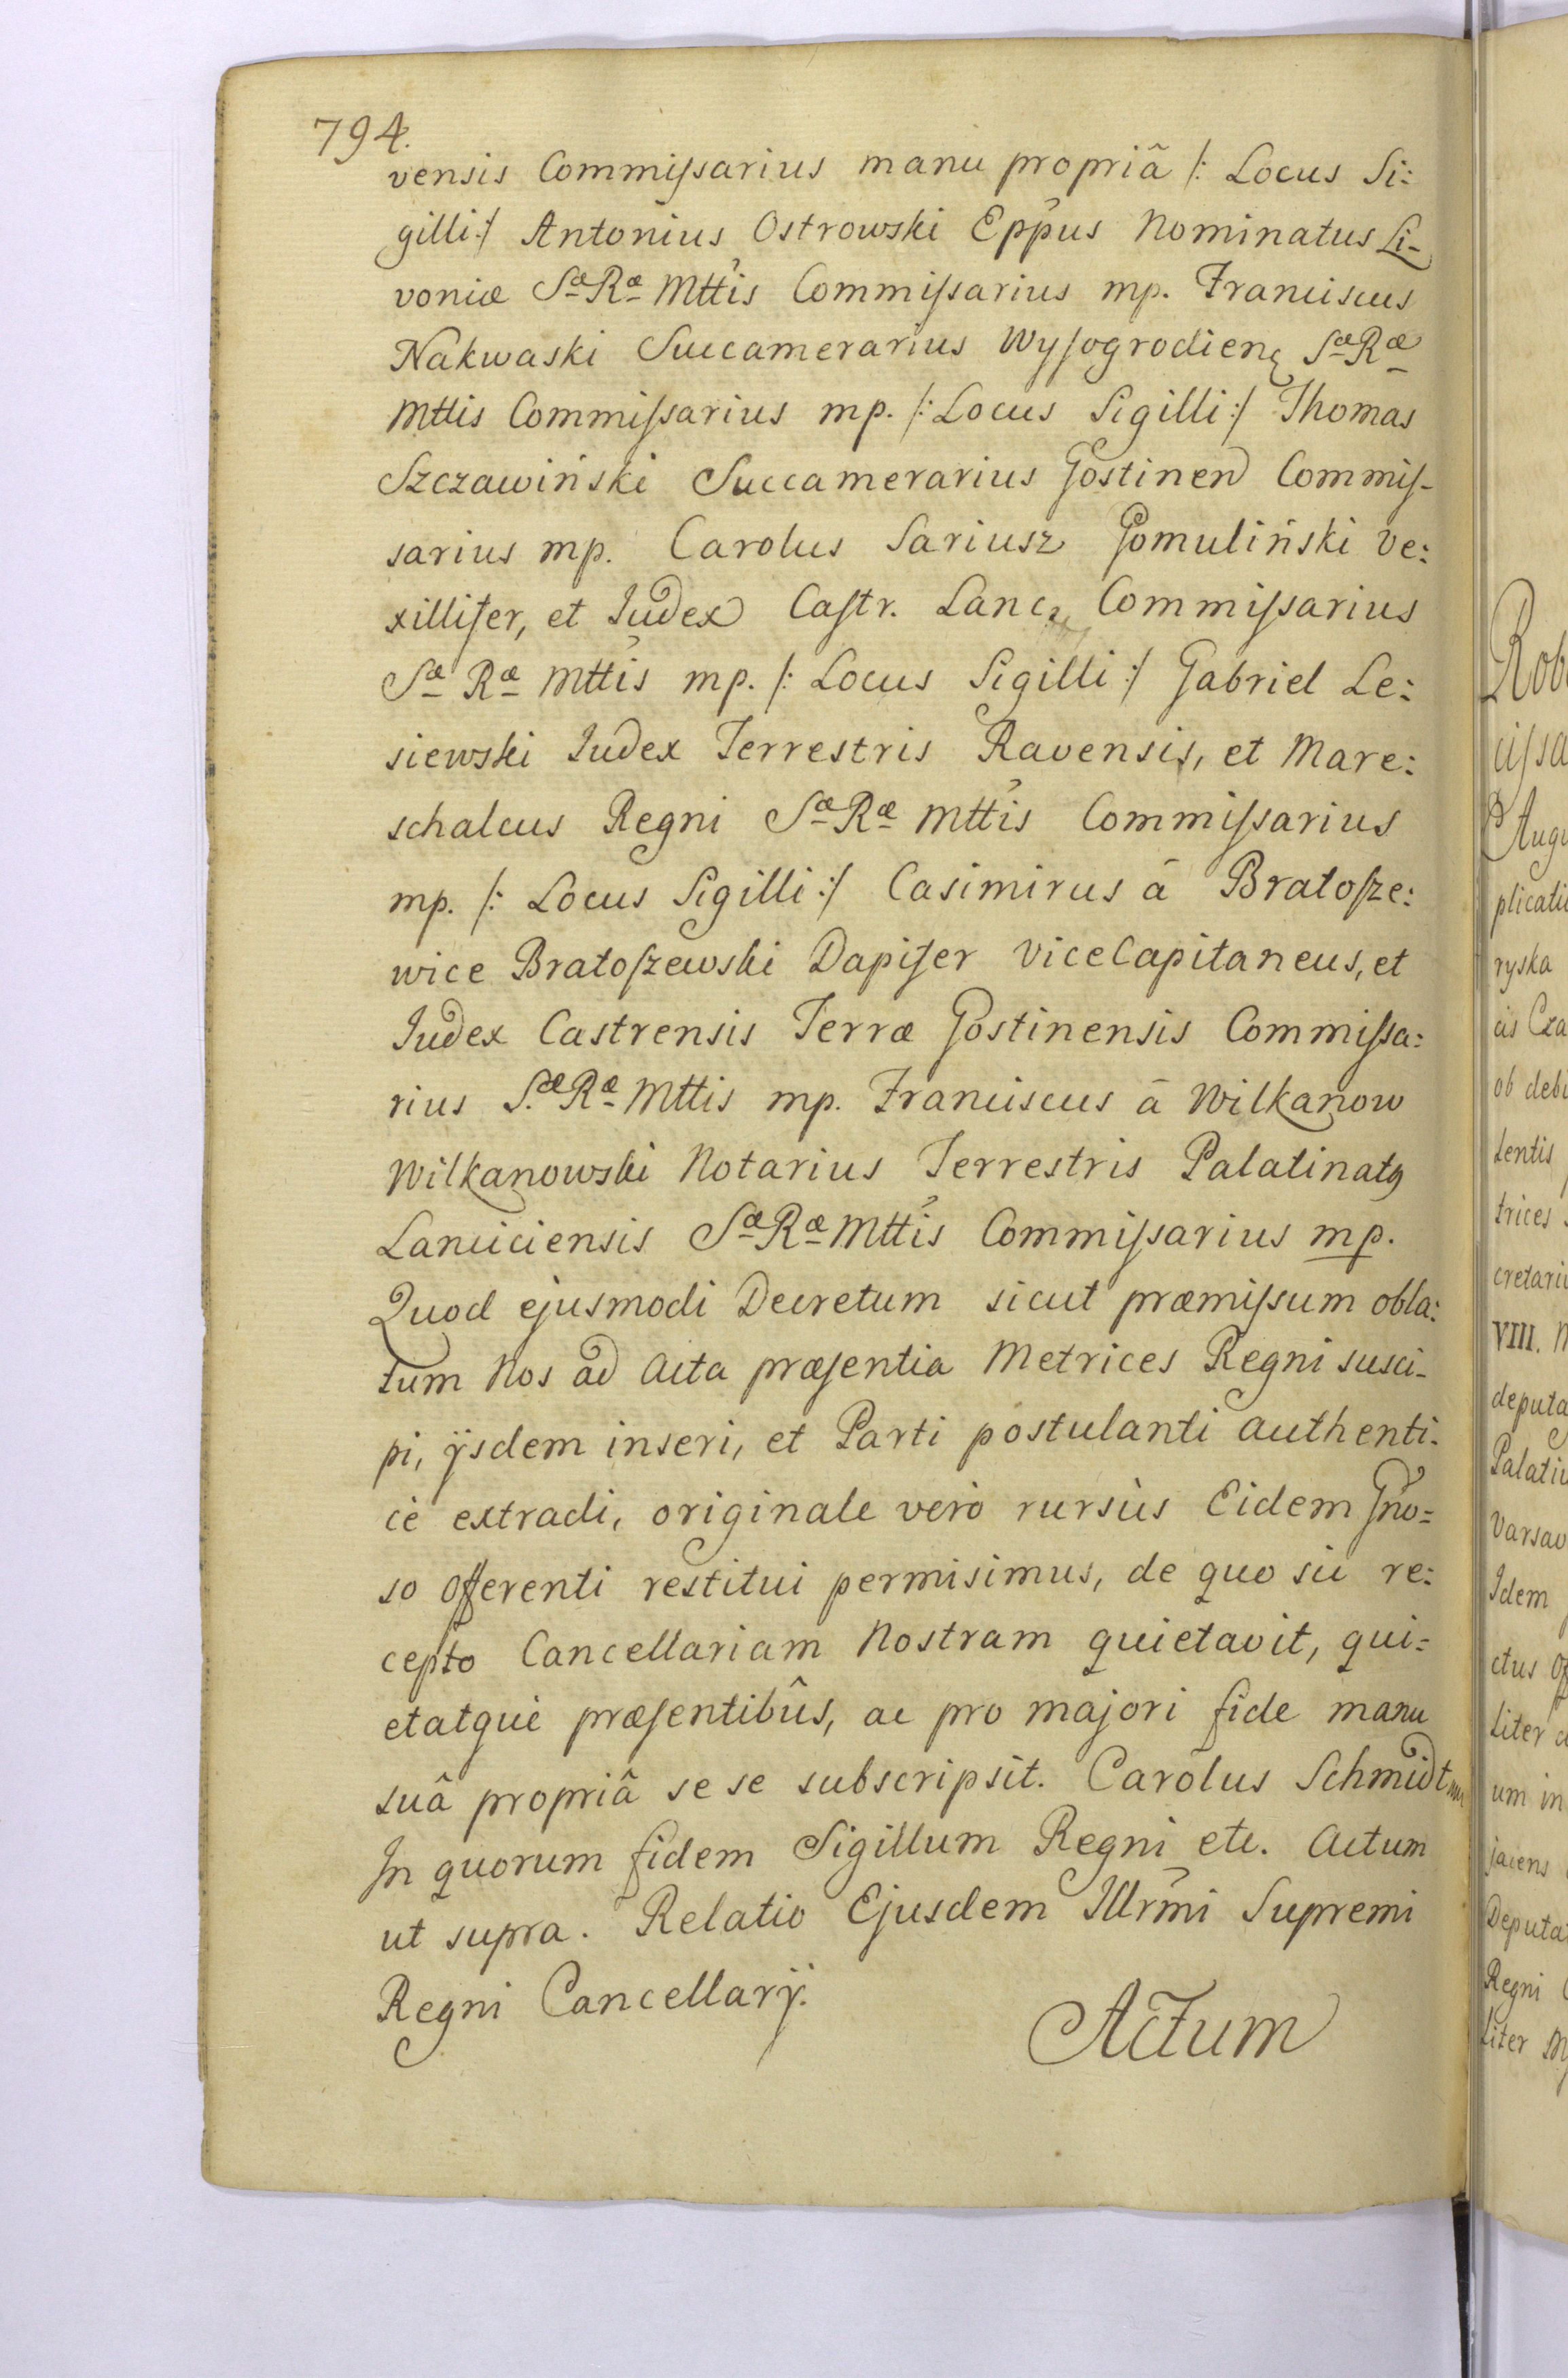 794.
vensis Commiſsarius manu propriâ /: Locus Si:
gilli:/ Antonius Ostrowski Eppus Nominatus Li-
voniæ Sæ Ræ Mttis Commiſsarius mp. Franciscus
Nakwaski Succamerarius Wyſogrodien Sæ Ræ
Mttis Commiſsarius mp. /: Locus Sigilli:/ Thomas
Szczawiński Succamerarius Gostinen Commiſ-
sarius mp. Carolus Sariusz Gomuliński Ve:
xillifer, et Iudex Caſtr. Lanc. Commiſsarius
Sæ Ræ Mttis mp. /: Locus Sigilli:/ Gabriel Le:
siewski Iudex Terrestris Ravensis, et Mare:
schalcus Regni Sæ Ræ Mttis Commiſsarius
mp. /: Locus Sigilli:/ Casimirus â Bratoſze:
wice Bratoſzewski Dapifer ViceCapitaneus, et
Iudex Castrensis Terræ Gostinensis Commiſsa:
rius S.æ Ræ Mttis mp. Franciscus â Wilkanow
Wilkanowski Notarius Terrestris Palatinatꝯ
Lanciciensis Sæ Ræ Mttis Commiſsarius mp.
Quod ejusmodi Decretum sicut præmiſsum obla:
tum Nos ad Acta præſentia Metrices Regni susci-
pi, ijsdem inseri, et Parti postulanti authenti-
cè extradi, originale verò rursùs Eidem Gno=
so Offerenti restitui permisimus, de quo sic re:
cepto Cancellariam Nostram quietavit, qui=
etatquè præſentibûs, ac pro majori fide manu
suâ propriâ se se subscripsit. Carolus Schmidt mp
In quorum fidem Sigillum Regni etc. Actum
ut supra. Relatio Ejusdem Illrmi Supremi
Regni Cancellarij.
Actum
cretarii
VIII.
deputa
ryska
ob debi
Idem
Regni